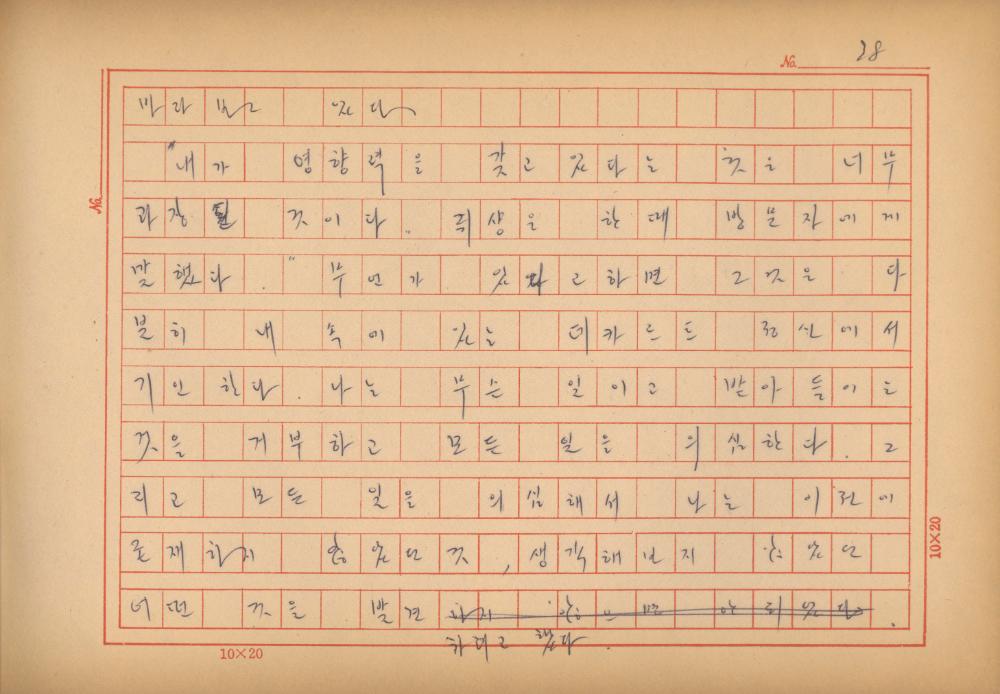 No. 28
바라보고 있다.
"내가 영향력을 갖고 있다는 것은 너무
과장된 것이다. 뒤샹은 한때 방문자에게
말했다. " 무언가 있다고하면 그것은 다
분히 내 속에 있는 데카르트 정신에서
기인한다. 나는 무슨 일이고 받아들이는
것을 거부하고 모든 일을 의심한다. 그
리고 모든 일을 의심해서 나는 이전에
존재하지 않았던 것, 생각해보지 않았던
어떤 것을 발견 하지 않으면 안 되었다.
하려고 했다.
No.
10×20
10×20